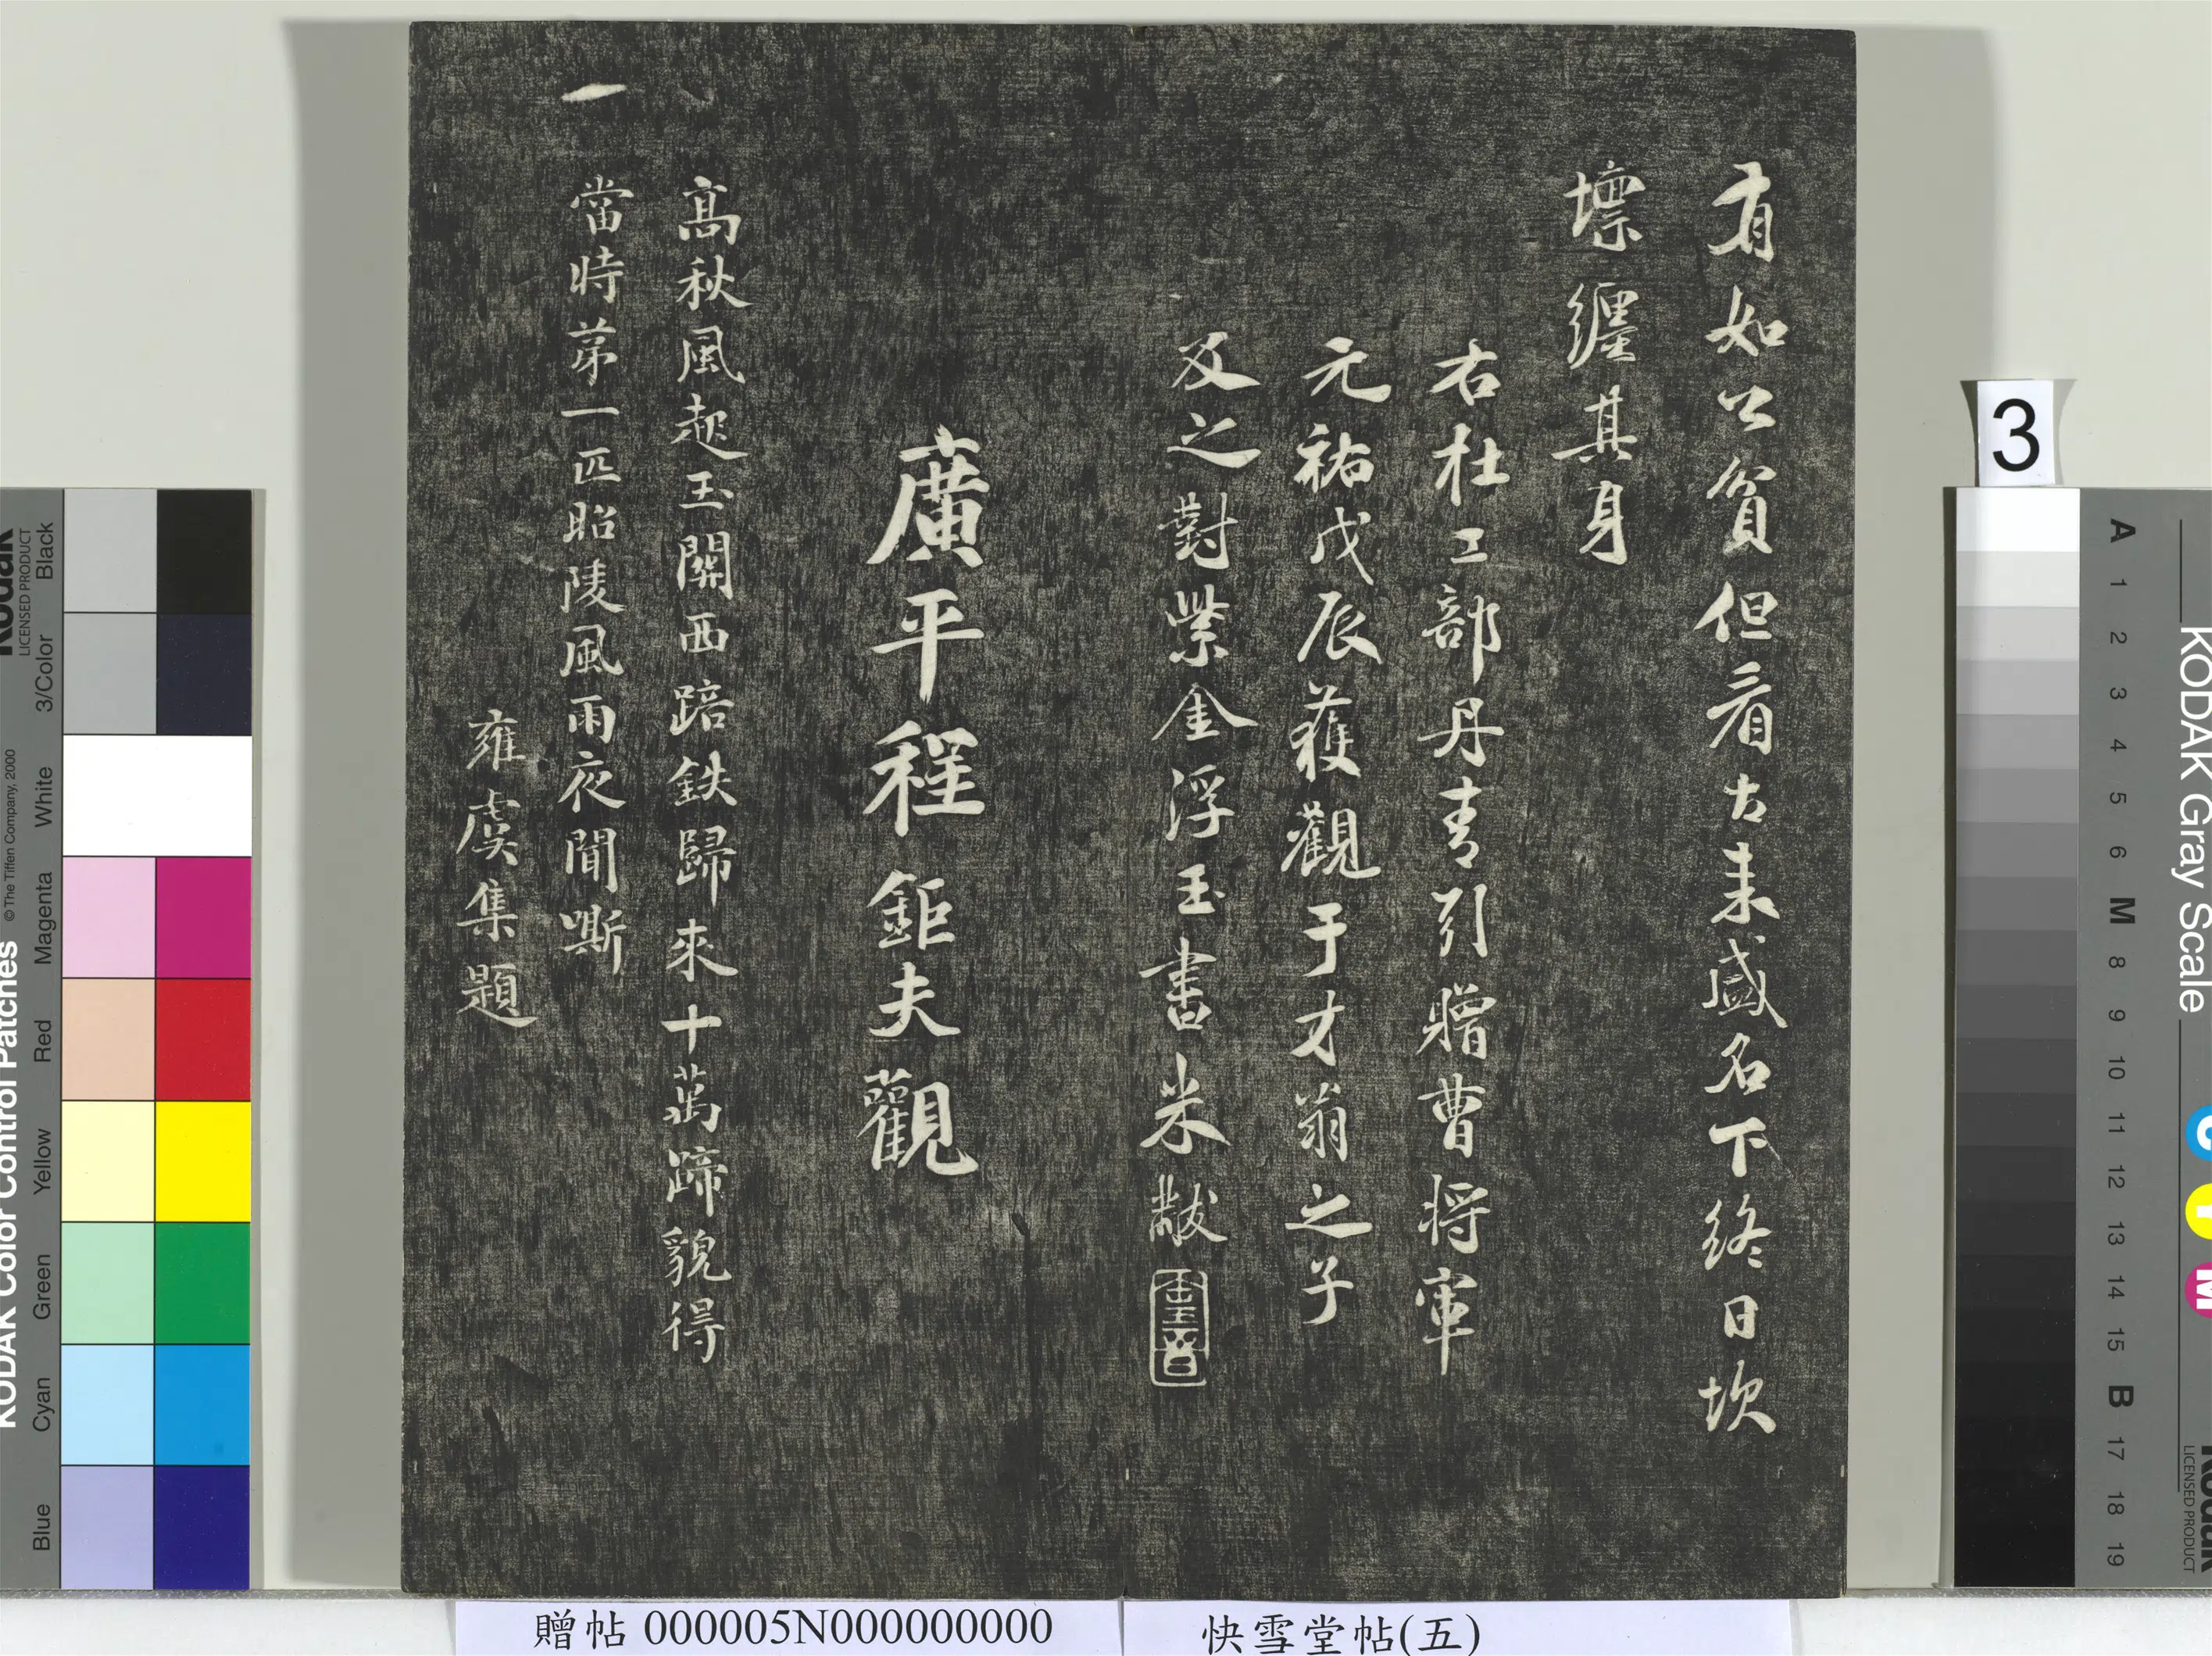 有如公貧但看古来盛名下終日坎
壈纏其身
右杜工部丹青引贈曹将軍
元祐戊辰獲觀于才翁之子
及之對紫金浮玉書米黻
廣平程鉅夫觀
高秋風起玉關西踣鉄歸來十萬蹄貌得
一
當時苐一匹昭陵風雨夜聞嘶
雍虞集題
贈帖 000005N000000000
快雪堂帖(五)
3
KODAK Color Control Patches
© The Tiffen Company, 2000
Kodak
LICENSED PRODUCT
Blue
Cyan
Green
Yellow
Red
Magenta
White
3/Color
Black
KODAK Gray Scale
C
Y
M
Kodak
LICENSED PRODUCT
A
1
2
3
4
5
6
M
8
9
10
11
12
13
14
15
B
17
18
19